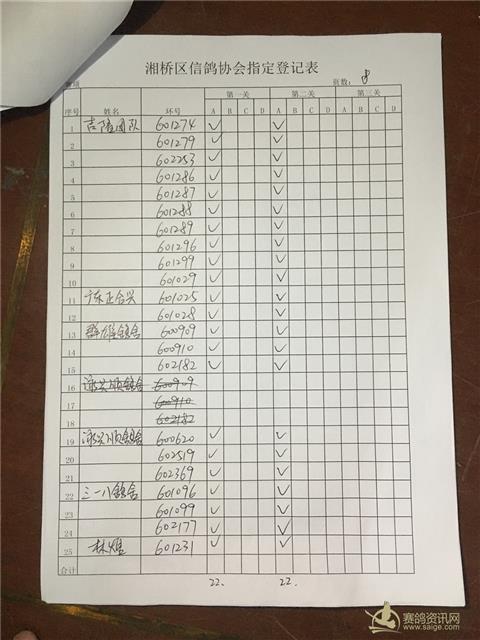 湘桥区信鸽协会指定登记表
页数: 8
第一关 第二关 第三关
序号 姓名 环号 A B C D A B C D A B C D
1 吉隆团队 601274 ✓ ✓
2 601279 ✓ ✓
3 602253 ✓ ✓
4 601286 ✓ ✓
5 601287 ✓ ✓
6 601288 ✓ ✓
7 601289 ✓ ✓
8 601296 ✓ ✓
9 601299 ✓ ✓
10 601029 ✓ ✓
11 广东正合兴 601025 ✓ ✓
12 601028 ✓ ✓
13 群雄鸽舍 600909 ✓ ✓
14 600910 ✓ ✓
15 602182 ✓ ✓
16 泳兴顺鸽舍 600909
17 600910
18 602182
19 泳兴顺鸽舍 600620 ✓ ✓
20 602519 ✓ ✓
21 602369 ✓ ✓
22 三一八鸽舍 601096 ✓ ✓
23 601099 ✓ ✓
24 602177 ✓ ✓
25 林 601231 ✓ ✓
合计
22. 22.
赛鸽资讯网
www.saige.com